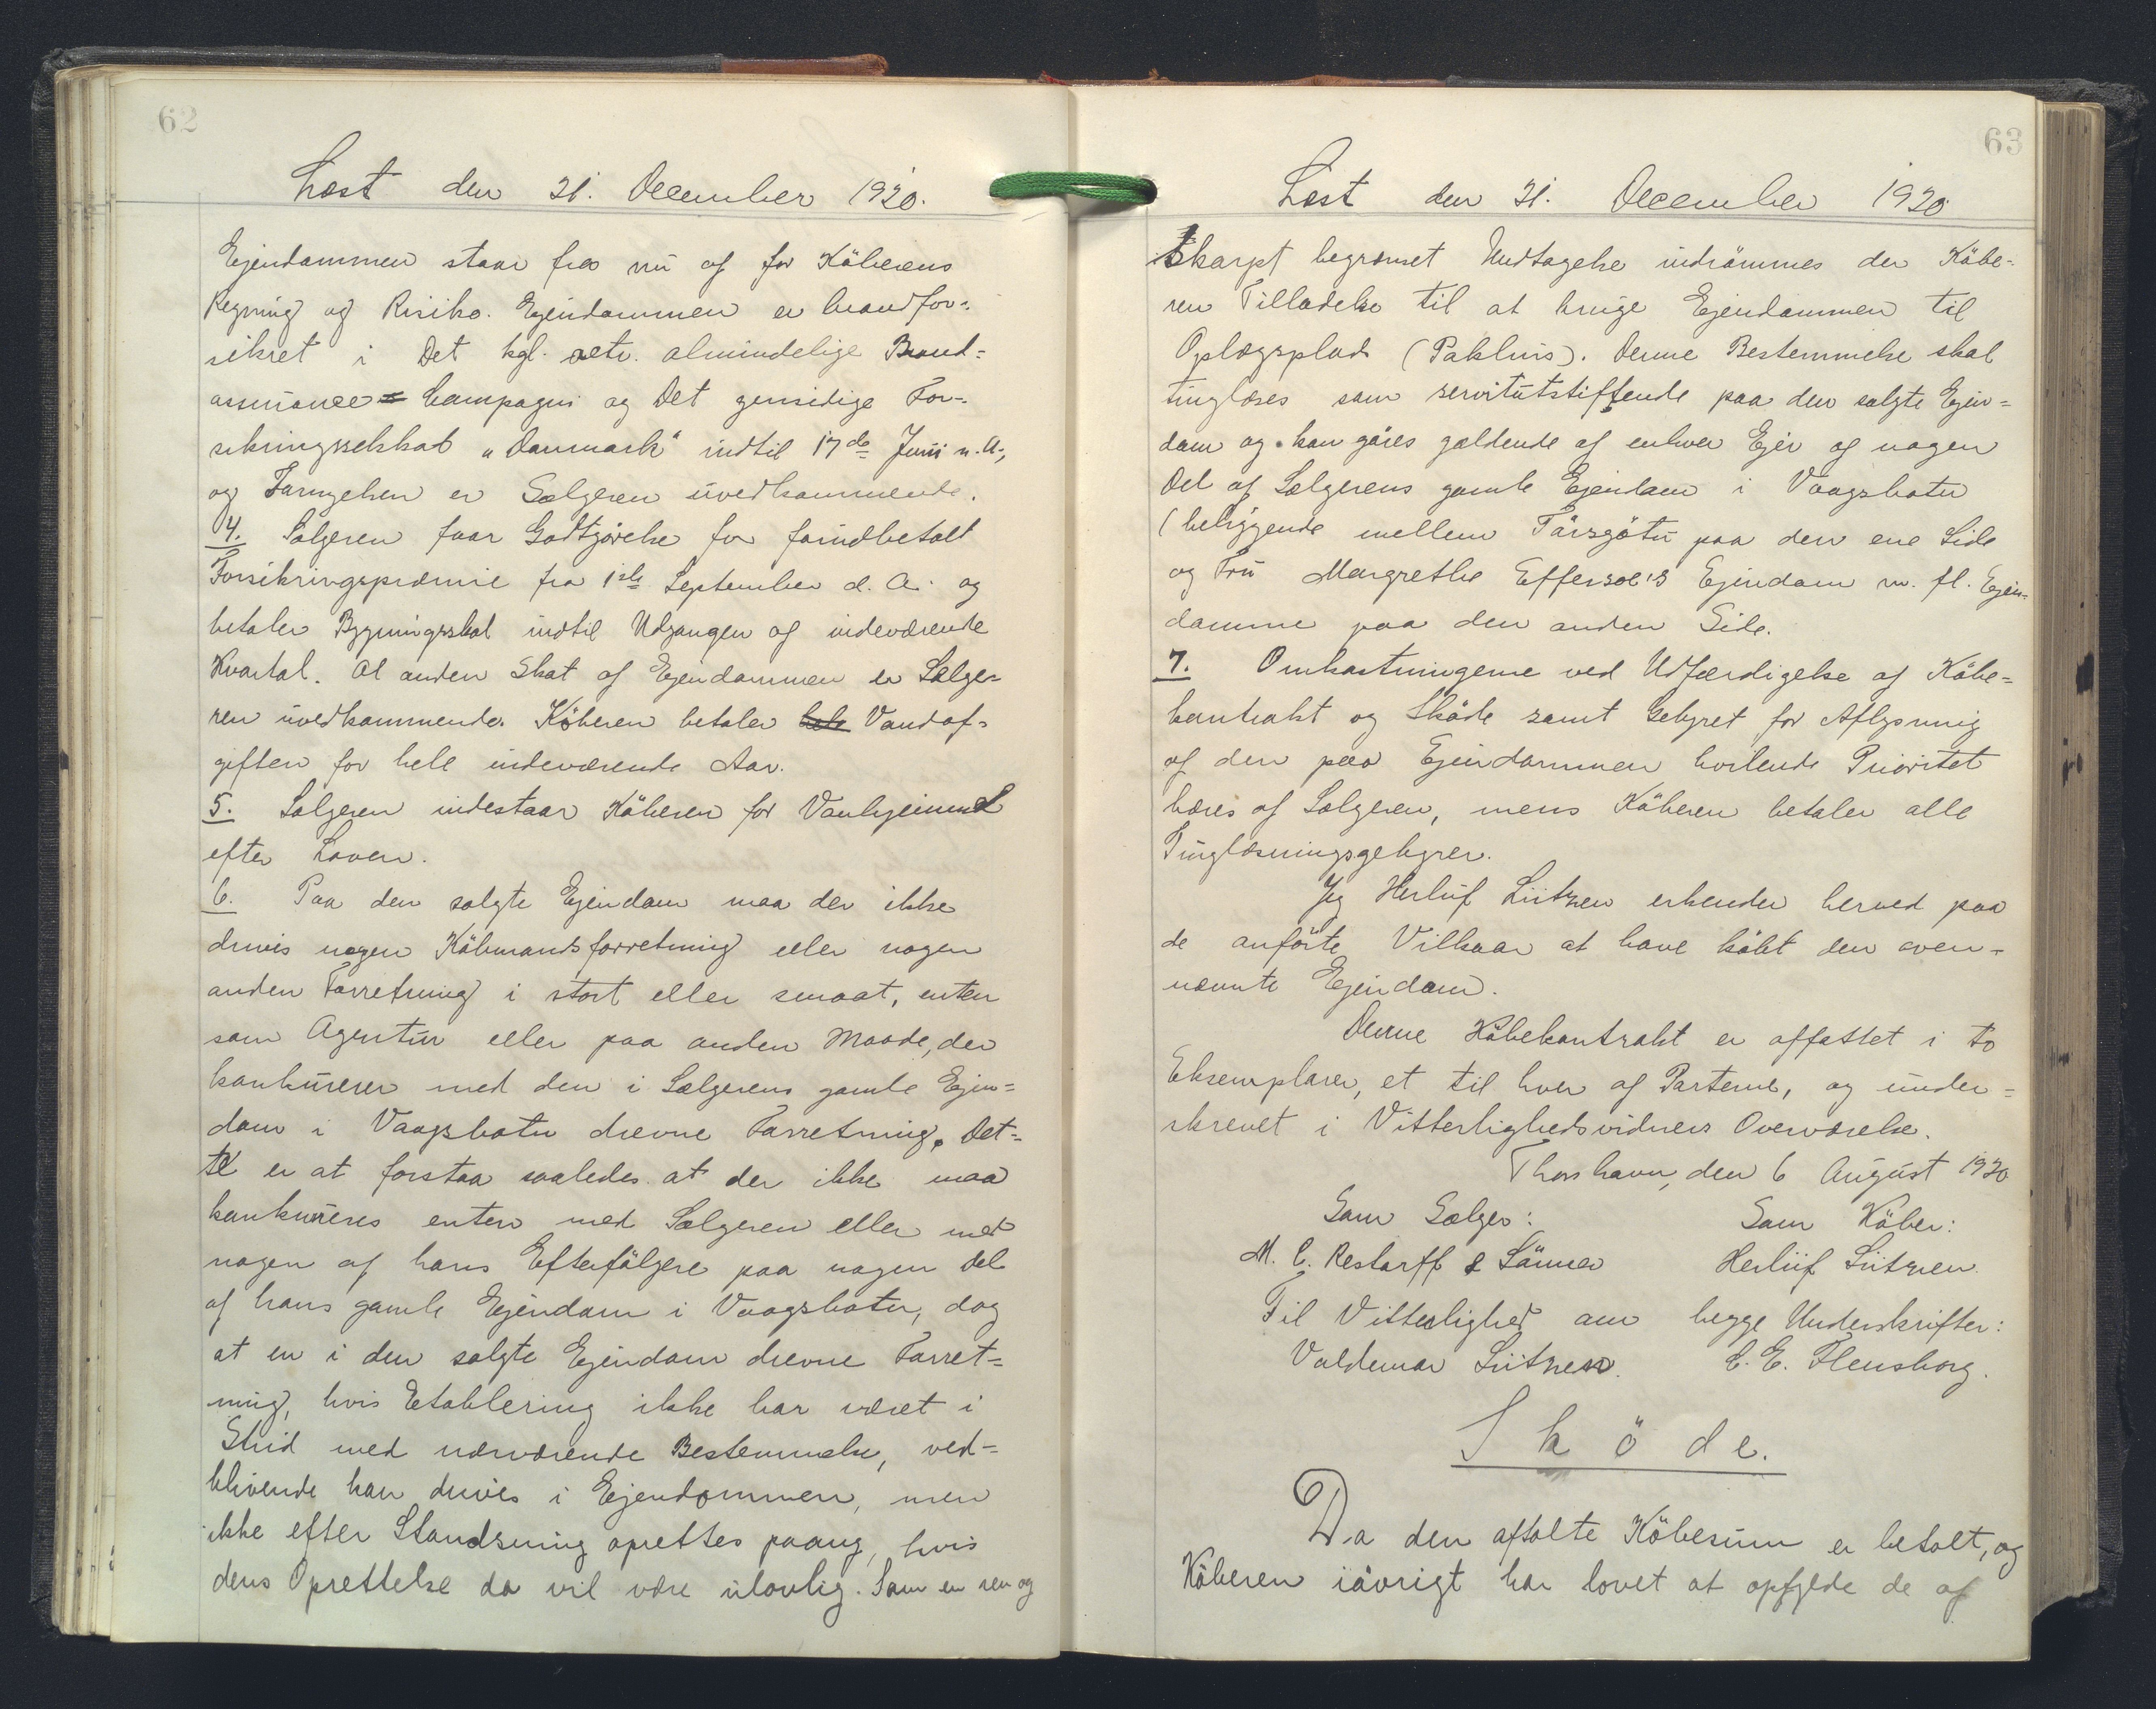 62
Læst den 21. December 1920.
Ejendommen staar fra nu af for Köberens
Regning og Risiko. Ejendommen er brandfor-
sikret i Det kgl. octr. almindelige Brand-
assurance-Compagni og Det gensidige For-
sikringsselskab "Danmark" indtil 17de Juni n. A.,
og Fornyelsen er Sælgeren uvedkommende.
4. Sælgeren faar Godtgörelse for forudbetalt
Forsikringspræmie fra 1ste September d. A. og
betaler Bygningsskat indtil Udgangen af indeværende
Kvartal. Al anden Skat af Ejendommen er Sælge-
ren uvedkommende. Köberen betaler hele Vandaf-
giften for hele indeværende Aar.
5. Sælgeren indestaar Köberen for Vanhjemmel
efter Loven.
6. Paa den solgte Ejendom maa der ikke
drives nogen Købmandsforretning eller nogen
anden Forretning i stort eller smaat, enten
som Agentur eller paa anden Maade, der
konkurerer med den i Sælgerens gamle Ejen-
dom i Vaagsbotn drevne Forretning. Det-
te er at forstaa saaledes at der ikke maa
konkureres enten med Sælgeren eller med
nogen af hans Efterfölgere paa nogen Del
af hans gamle Ejendom i Vaagsbotn, dog
at en i den solgte Ejendom drevne Forret-
ning, hvis Etablering ikke har været i
Strid med nærværende Bestemmelse, ved-
blivende kan drives i Ejendommen, men
ikke efter Standsning oprettes paany, hvis
dens Oprettelse da vil være ulovlig. Som en ren og
63
Læst den 21. December 1920
skarpt begrænset Undtagelse indrömmes der Købe-
ren Tilladelse til at bruge Ejendommen til
Oplagsplads (Pakhus). Denne Bestemmelse skal
tinglæses som servitutstiftende paa den solgte Ejen-
dom og kan göres gældende af enhver Ejer af nogen
Del af Sælgerens gamle Ejendom i Vaagsbotn
(beliggende mellem Tórsgøtu paa den ene Side
og Fru Margrethe Effersøe's Ejendom m. fl. Ejen-
domme paa den anden Side.
7. Omkostningerne ved Udfærdigelse af Købe-
kontrakt og Sköde samt Gebyret for Aflysning
af den paa Ejendommen hvilende Prioritet
bæres af Sælgeren, mens Köberen betaler alle
Tinglæsningsgebyrer.
Jeg Herluf Lützen erkender herved paa
de anförte Vilkaar at have köbt den oven-
nævnte Ejendom.
Denne Köbekontrakt er affattet i to
Eksemplarer, et til hver af Parterne, og under-
skrevet i Vitterlighedsvidners Overværelse.
Thorshavn, den 6 August 1920
Som Sælger: Som Köber:
M. C. Restorff & Sönner Herlüf Lützen.
Til Vitterlighed om begge Underskrifter:
Valdemar Lützen. C. E. Flensborg.
Sköde.
Da den aftalte Köbesum er betalt, og
Köberen iövrigt har lovet at opfylde de af